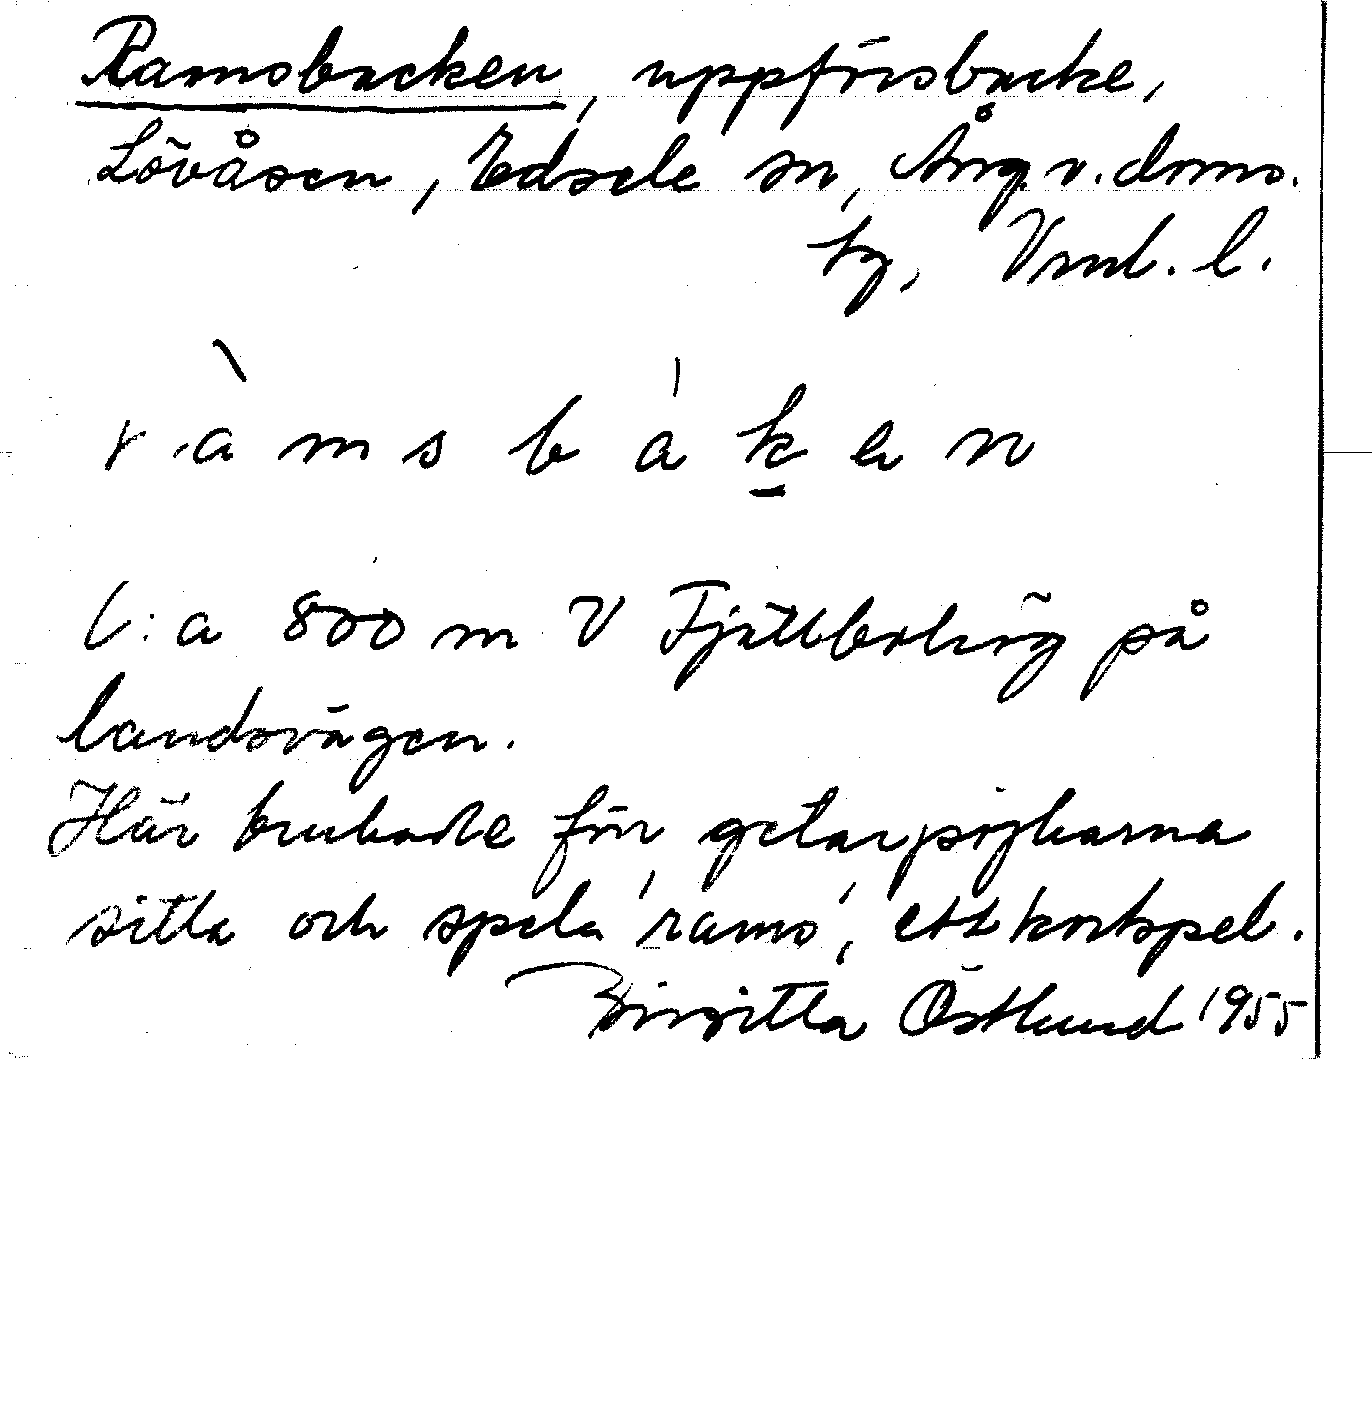 Ramsbacken, uppförsbacke,
Lövåsen, Edsele sn, Ång. v. doms.
tg, Vnrl. l.
r à m s b á k e n
C:a 800 m V Fjätlberhög på
landsvägen.
Här brukade förr getarpojkarna
sitta och spela 'rams', ett kortspel.
Birgitta Östlund 1955